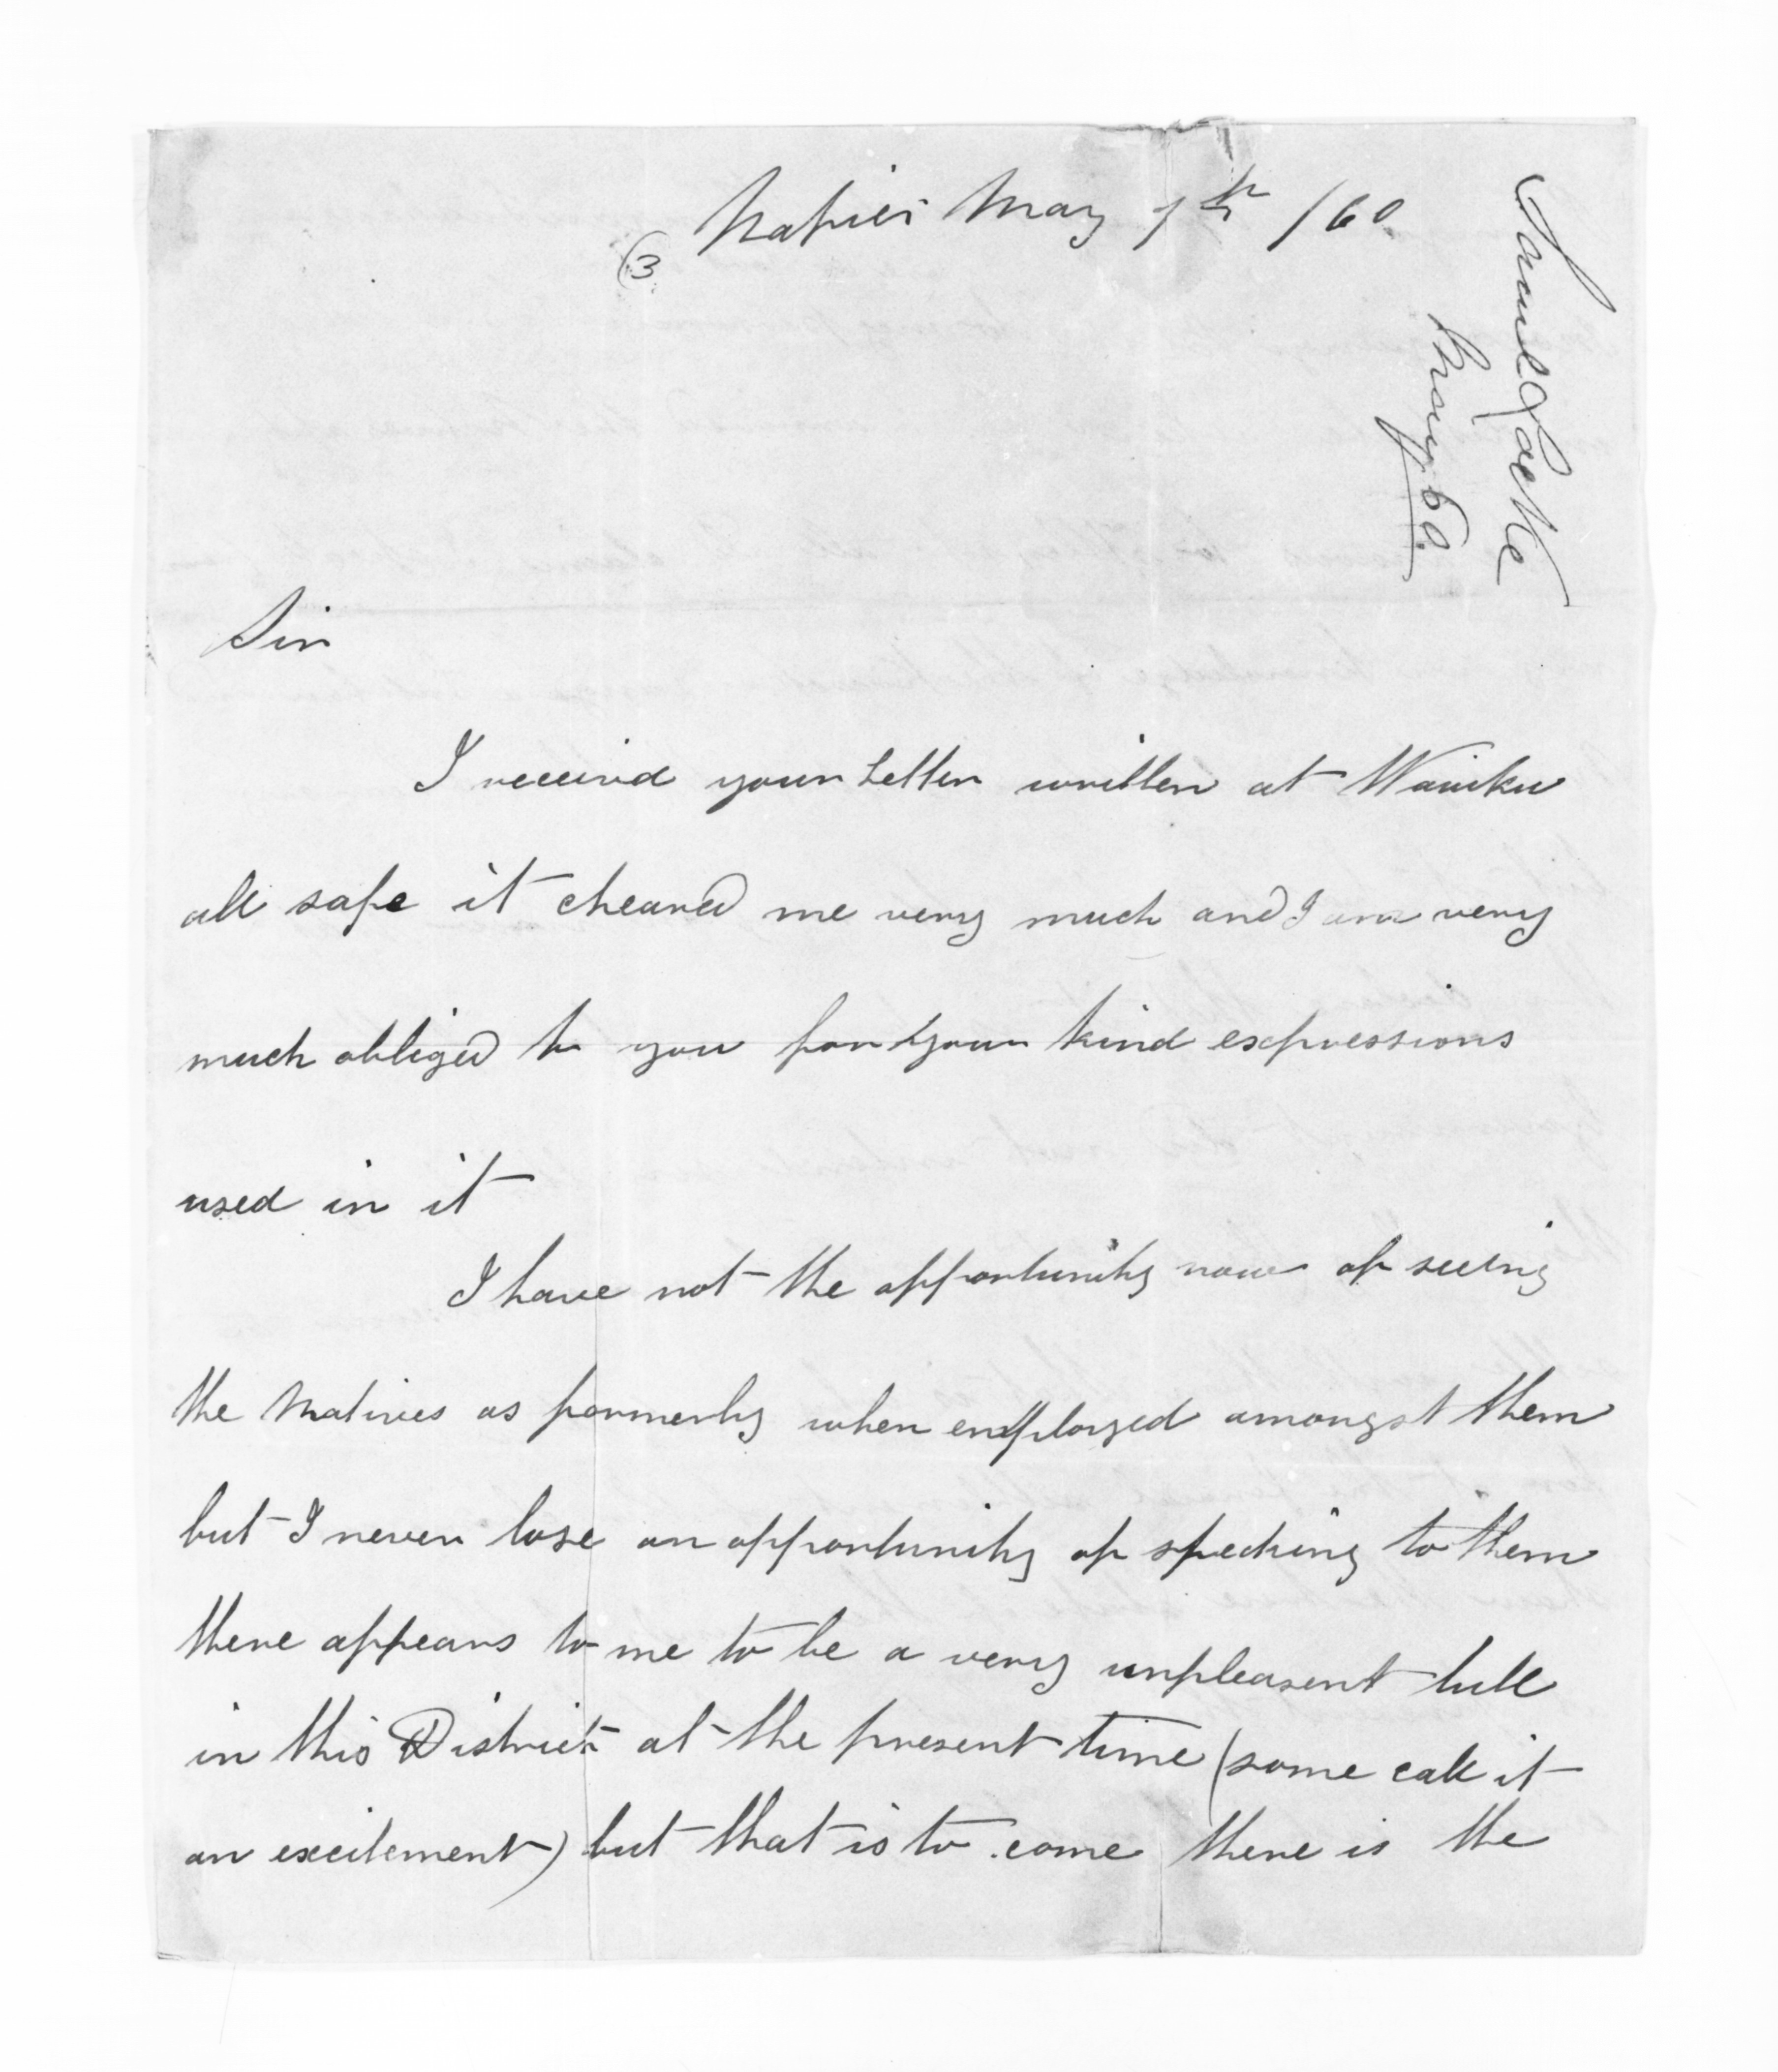 Napier May 7th /60.
(3
Samuel Locke
May 60.
Sir
I receivd your Letter written at Waiuku
all safe it cheared me very much and I am very
much obliged to you for your kind expressions
used in it
I have not the opportunity now of seeing
the Natives as formerly when employed amongst them
but I never lose an opportunity of speaking to them
there appears to me to be a very unpleasent lull
in this District at the present time (some call it
an excitement) but that is to come there is the